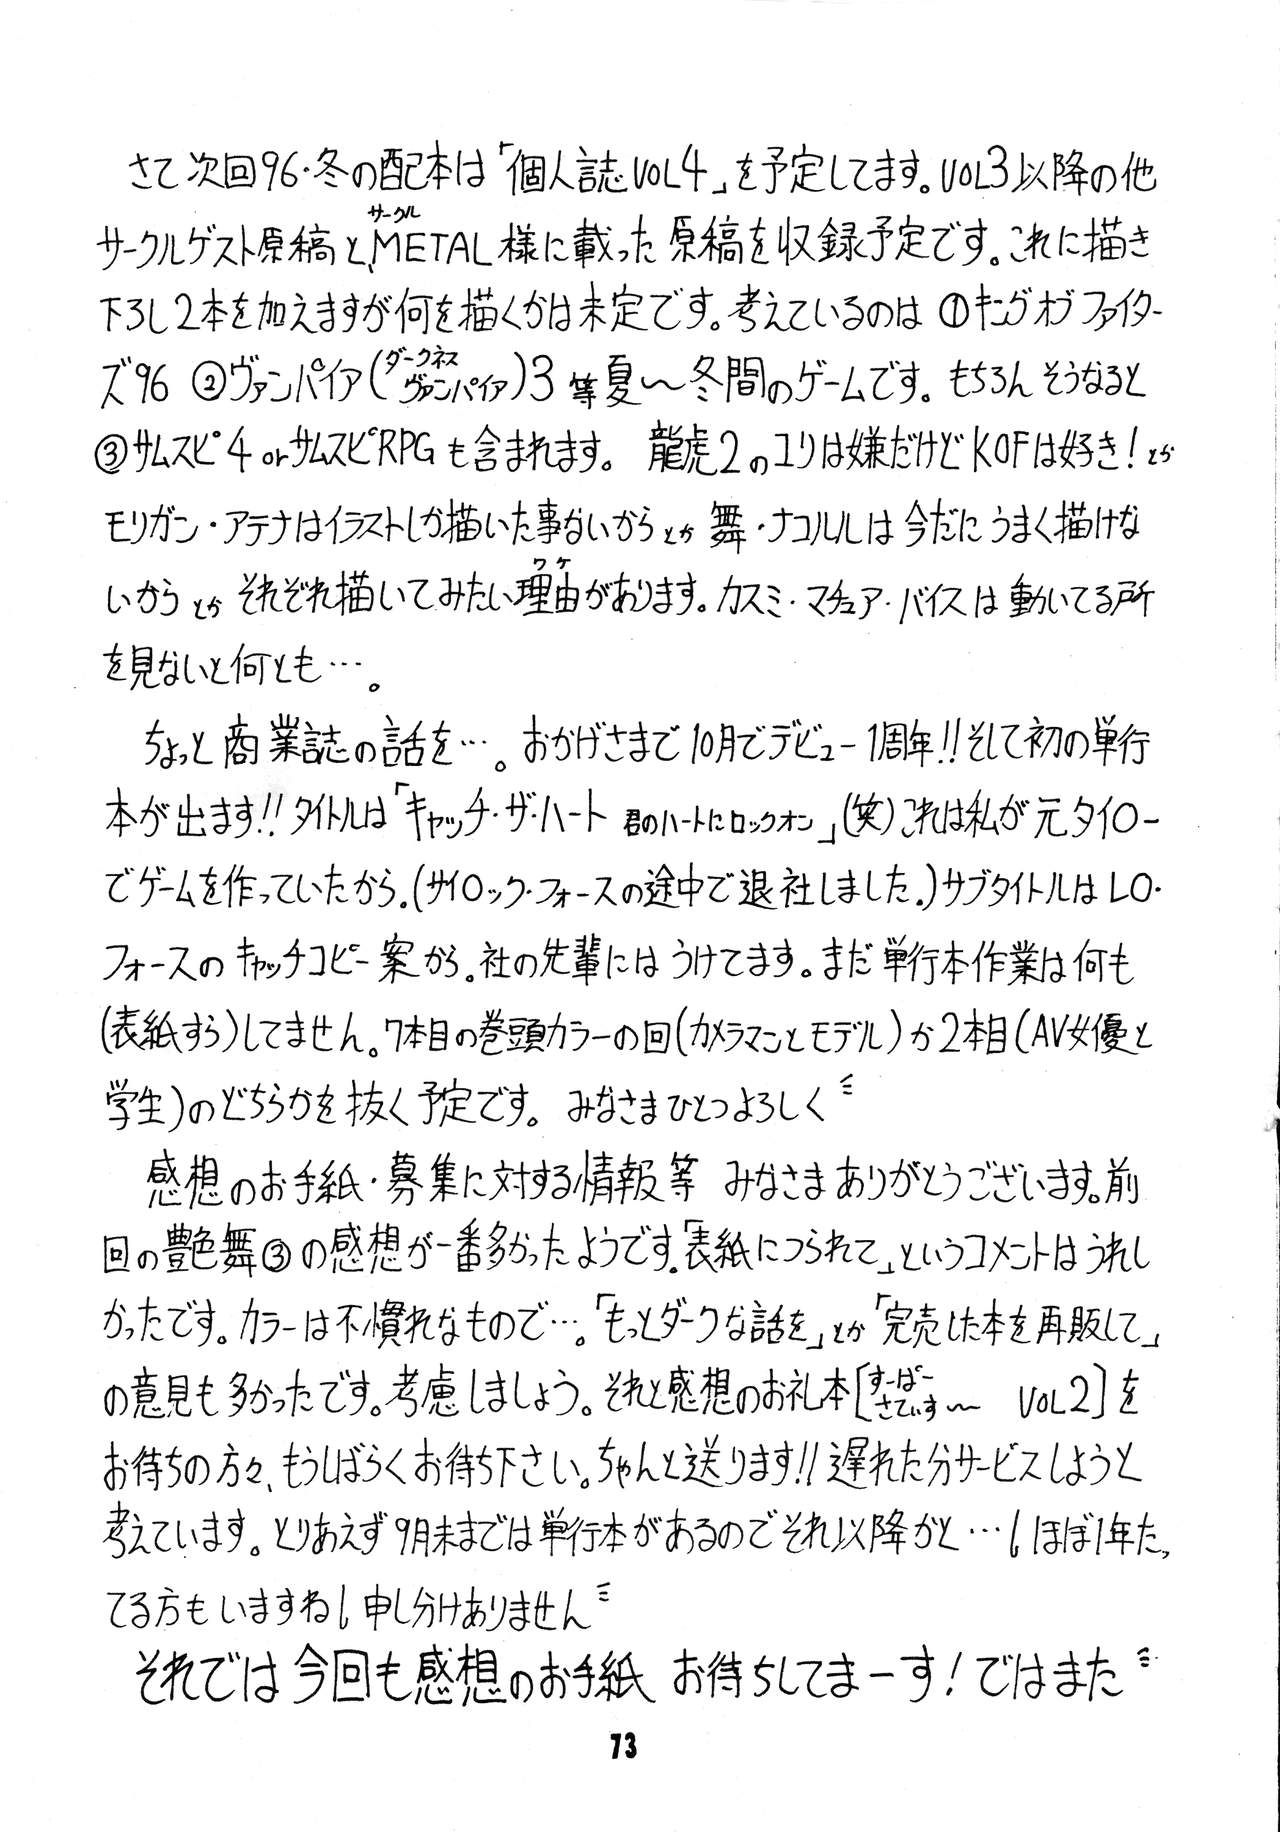 さて次回96・冬の配本は「個人誌VOL4」を予定してます。VOL3以降の他
サークルゲスト原稿と、METAL様に載った原稿を収録予定です。これに描き
サークル
下ろし2本を加えますが何を描くかは未定です。考えているのは ①キングオブファイター
ズ'96 ②ヴァンパイア(ダークネスヴァンパイア)3 等夏〜冬間のゲームです。もちろんそうなると
③サムスピ4 orサムスピRPGも含まれます。 龍虎2のユリは嫌だけどKOFは好き!とか
モリガン・アテナはイラストしか描いた事ないからとか 舞・ナコルルは今だにうまく描けな
いからとか それぞれ描いてみたい理由があります。カスミ・マチュア・バイスは動いてる所
ワケ
を見ないと何とも…。
ちょっと商業誌の話を…。おかげさまで10月でデビュー1周年!!そして初の単行
本が出ます!!タイトルは「キャッチ・ザ・ハート 君のハートにロックオン」(笑)これは私が元タイロー
でゲームを作っていたから。(サイロック・フォースの途中で退社しました。)サブタイトルはLO・
フォースのキャッチコピー案から。社の先輩にはうけてます。まだ単行本作業は何も
(表紙すら)してません。7本目の巻頭カラーの回(カメラマンとモデル)か2本目(AV女優と
学生)のどちらかを抜く予定です。 みなさまひとつよろしく
感想のお手紙・募集に対する情報等 みなさまありがとうございます。前
回の艶舞③の感想が一番多かったようです。「表紙につられて」というコメントはうれし
かったです。カラーは不慣れなもので…。「もっとダークな話を」とか「完売した本を再販して」
の意見も多かったです。考慮しましょう。それと感想のお礼本[すーぱーさてぃすー VOL2]を
お待ちの方々、もうしばらくお待ち下さい。ちゃんと送ります!!遅れた分サービスしようと
考えています。とりあえず9月末までは単行本があるのでそれ以降かと…。ほぼ1年たっ
てる方もいますね。申し分けありません
それでは今回も感想のお手紙 お待ちしてまーす!ではまた
73